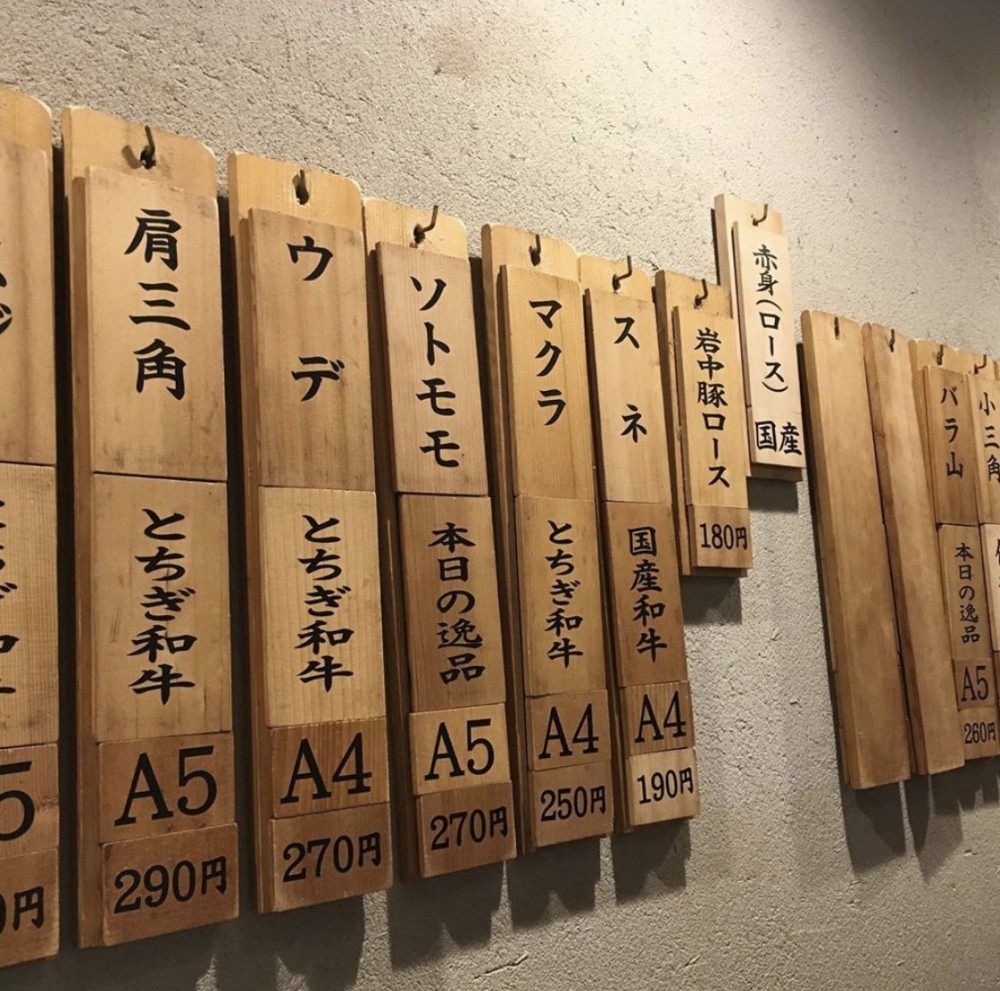 肩三角
とちぎ和牛
A5
290円
ウデ
とちぎ和牛
A4
270円
ソトモモ
本日の逸品
A5
270円
マクラ
とちぎ和牛
A4
250円
スネ
国産和牛
A4
190円
岩中豚ロース
180円
赤身(ロース)
国産
バラ山
本日の逸品
A5
260円
小三角